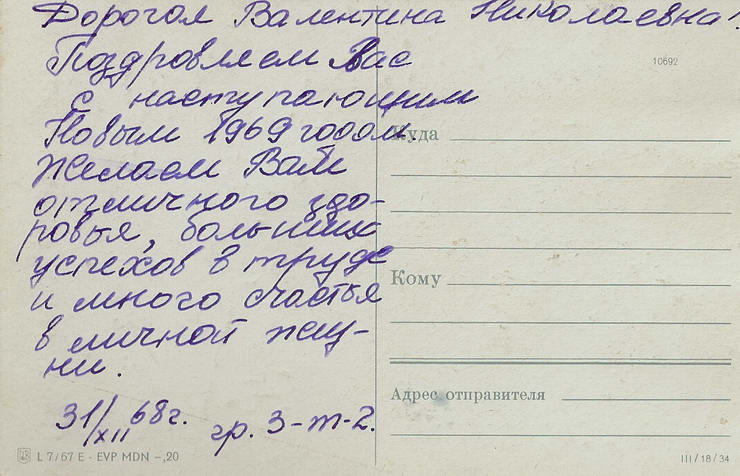 Дорогая Валентина Николаевна!
Поздравляем Вас
с наступающим
Новым 1969 годом.
Желаем Вам
отличного здо-
ровья, больших
успехов в труде
и много счастья
в личной жиз-
ни.
31/XII 68г. гр. 3-т-2.
10692
Куда
Кому
Адрес отправителя
L 7/67 E · EVP MDN –,20
III/18/34